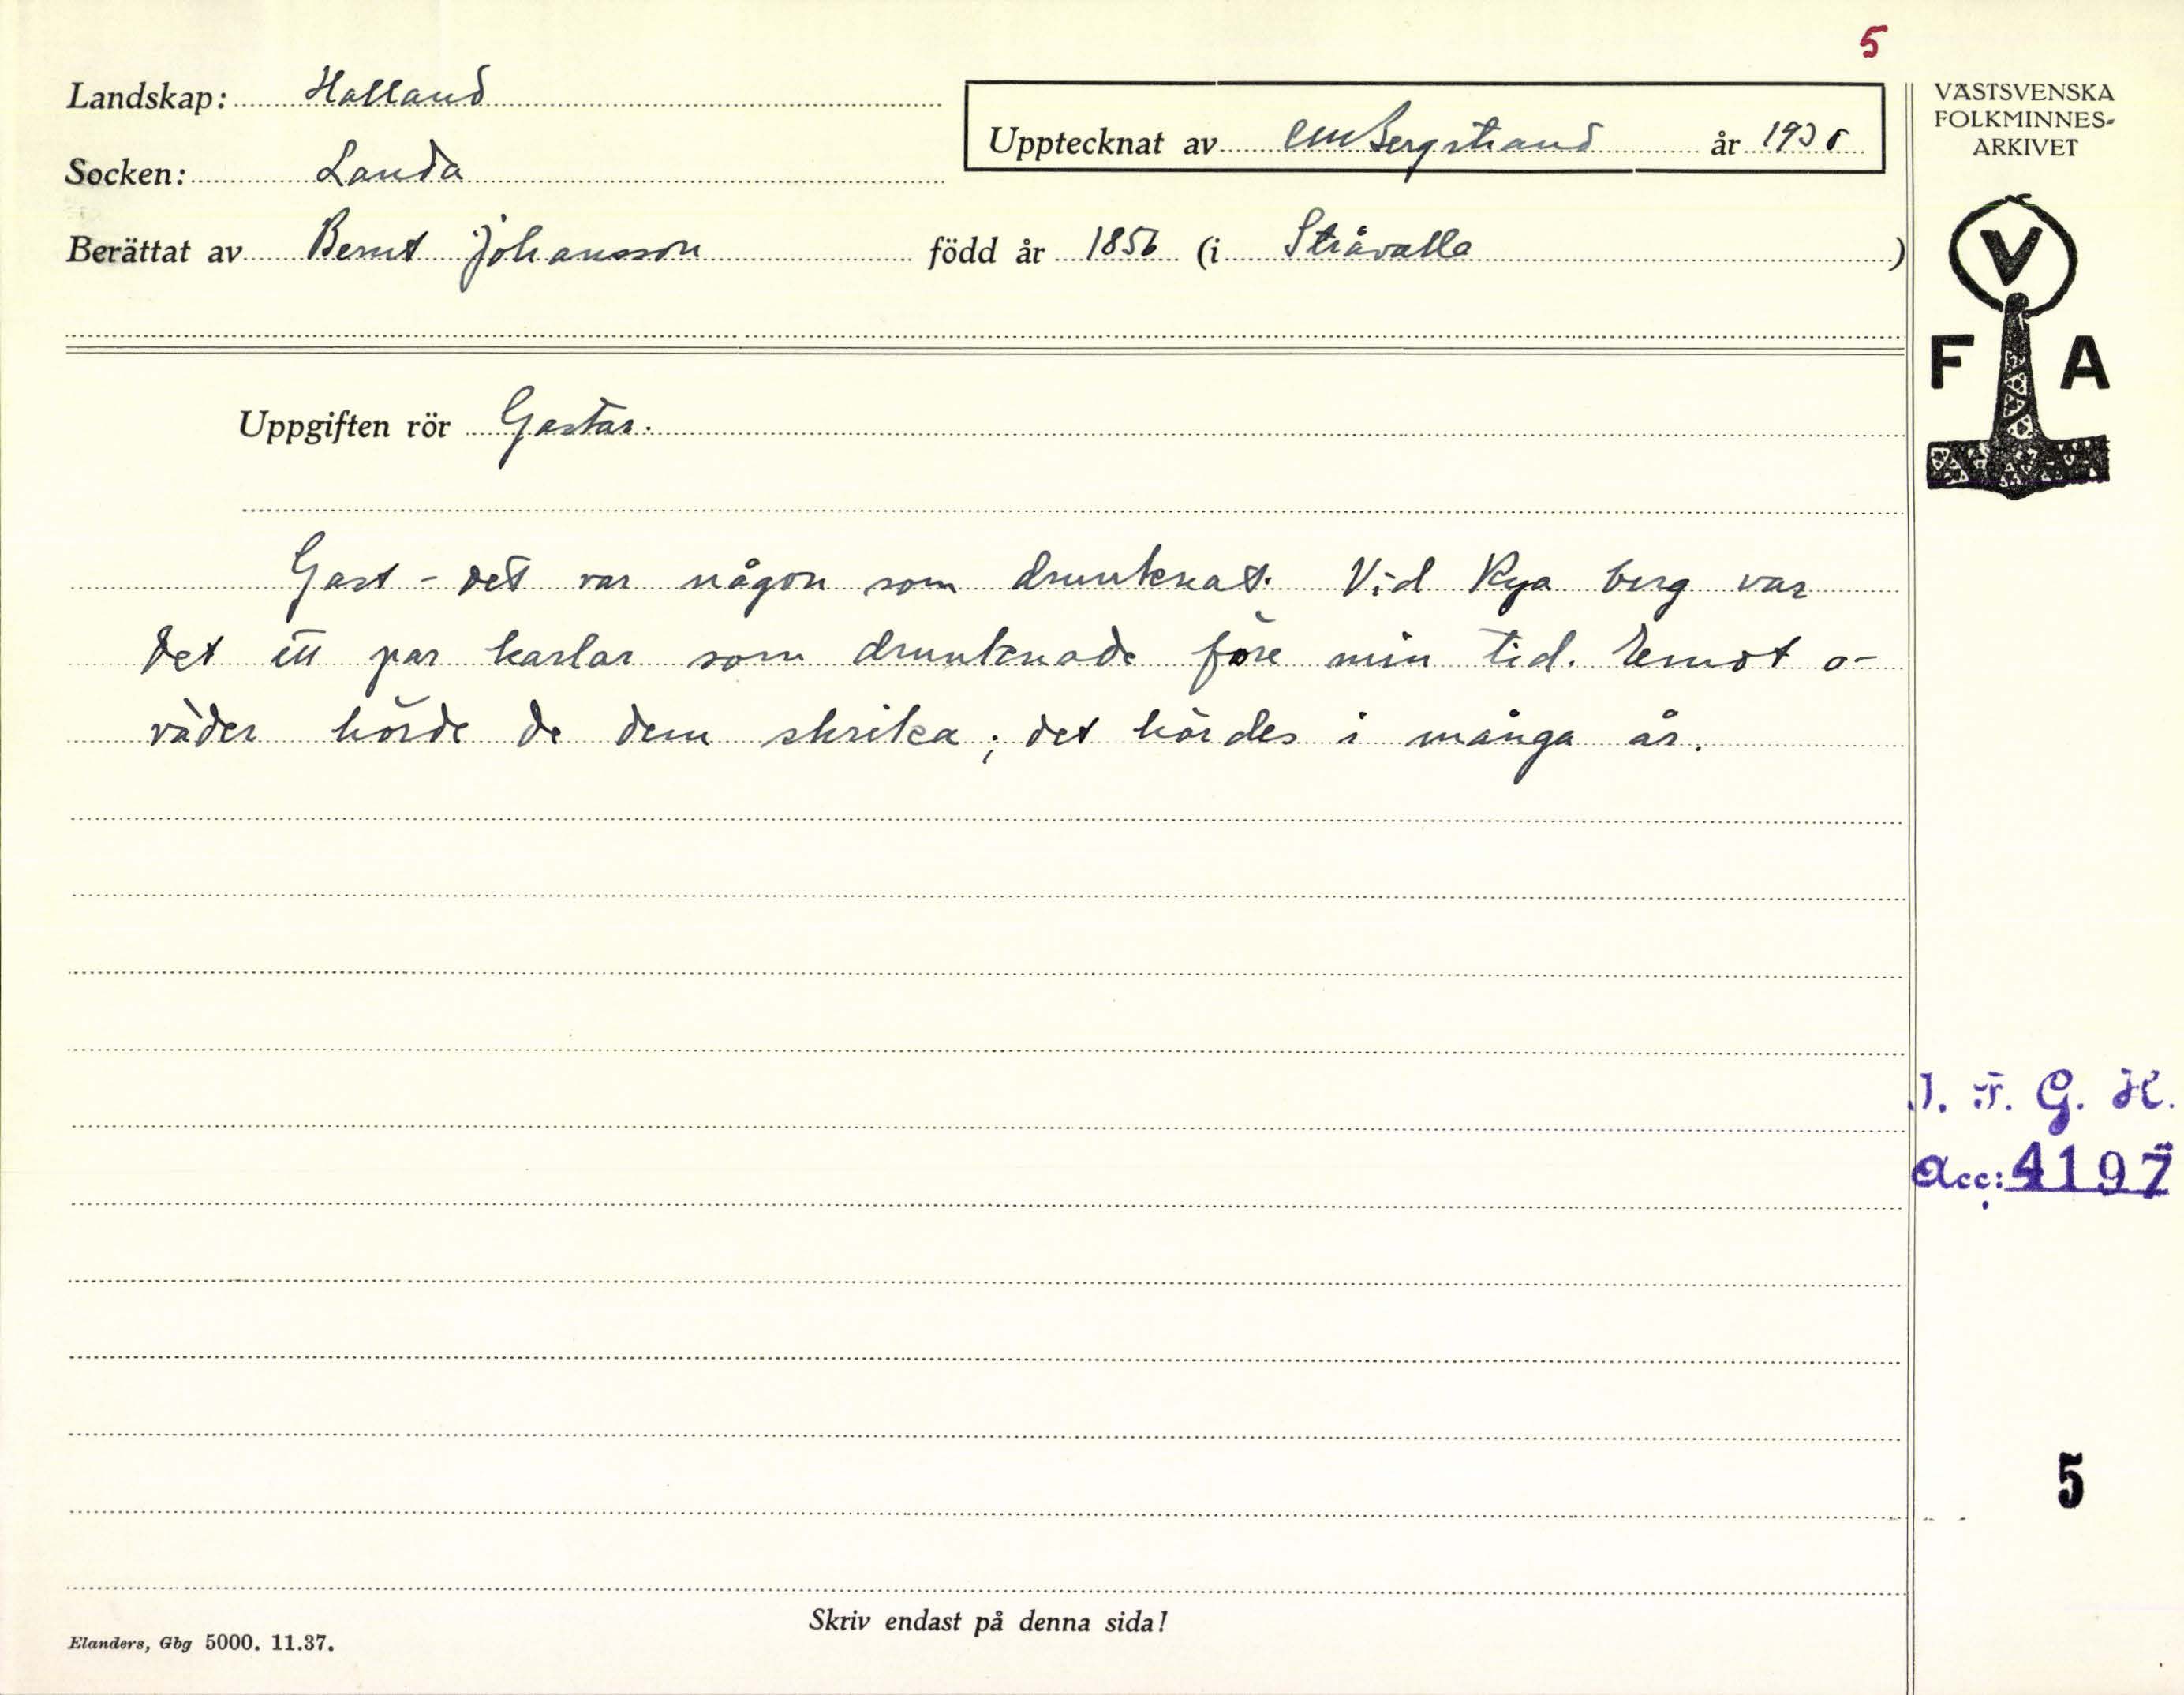 5
Landskap: Halland
Upptecknat av CM Bergstrand år 1938
VÄSTSVENSKA
FOLKMINNES-
ARKIVET
Socken: Landa
Berättat av Bernt Johansson född år 1856 (i Stråvalla)
V
F A
Uppgiften rör Gastar.
Gast - det var någon som drunknat. Vid Rya berg var
det ett par karlar som drunknade före min tid. Emot o-
väder hörde de dem skrika; det hördes i många år.
I. F. G. H.
Acc: 4197
5
Skriv endast på denna sida!
Elanders, Gbg 5000. 11.37.